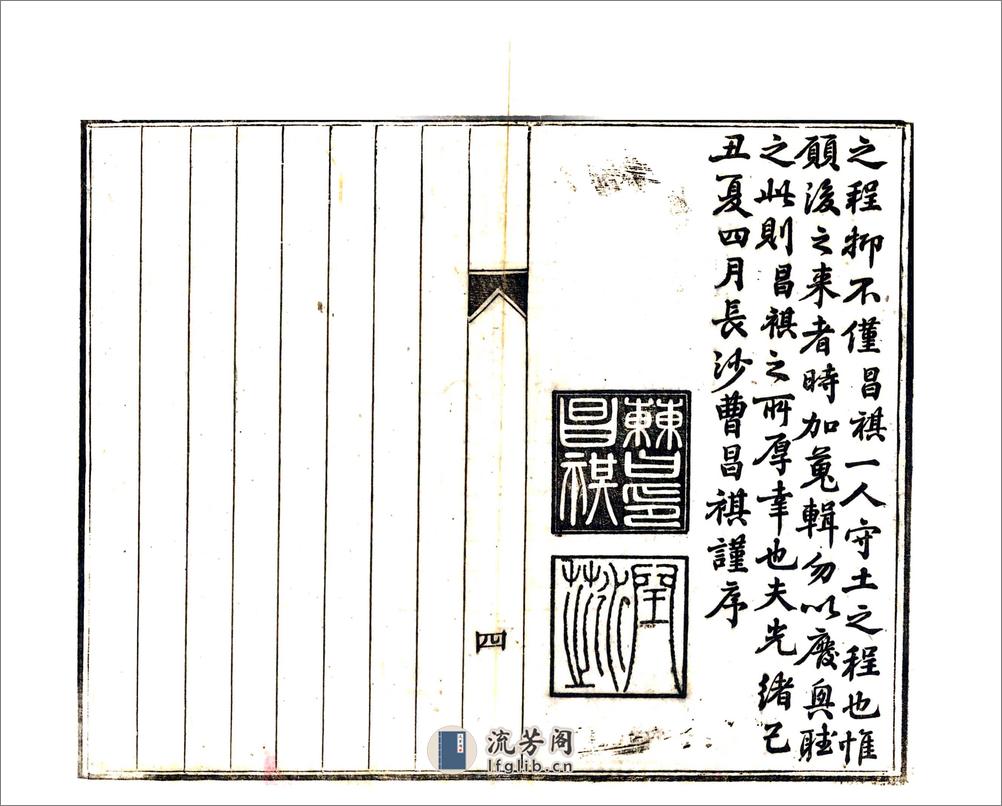 之程抑不僅昌祺一人守土之程也惟
願後之来者時加蒐輯勿以廢興聴
之此則昌祺之所厚幸也夫光緒己
丑夏四月長沙曹昌祺謹序
曹印
昌祺
四
流芳阁
lfglib.cn